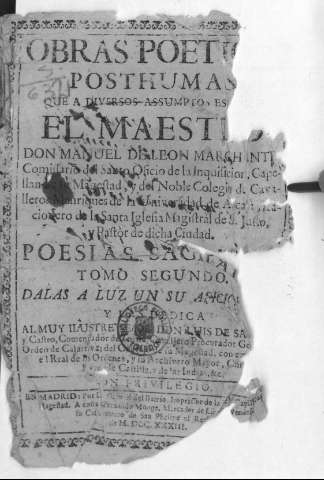 OBRAS POETI
POSTHUMAS
QUE A DIVERSOS ASSUMPTOS ES
EL MAEST
DON MANUEL DE LEON MARCHANT
Comissario del Santo Oficio de la Inquisicion, Cape-
llan de su Magestad, y del Noble Colegio de Cava-
lleros Manriques de la Universidad de Alcala, Ra-
cionero de la Santa Iglesia Magistral de S. Justo,
y Pastor de dicha Ciudad.
POESIAS SAGRA
TOMO SEGUNDO.
DALAS A LUZ UN SU AFICIO
Y DEDICA
AL MUY ILUSTRE DON LUIS DE SA
y Castro, Comendador de Procurador Ge
Orden de Calatrava; del de su Magestad, con ex
el Real de las Ordenes, y su Archivero Mayor,
de Castilla, y de las Indias, &c.
CON PRIVILEGIO.
EN MADRID: Por del Barrio, Impressor de la
Magestad. A costa de Fernando Monge, Mercader de Li
de San Phelipe el Re
de M. DCC. XXXIII.